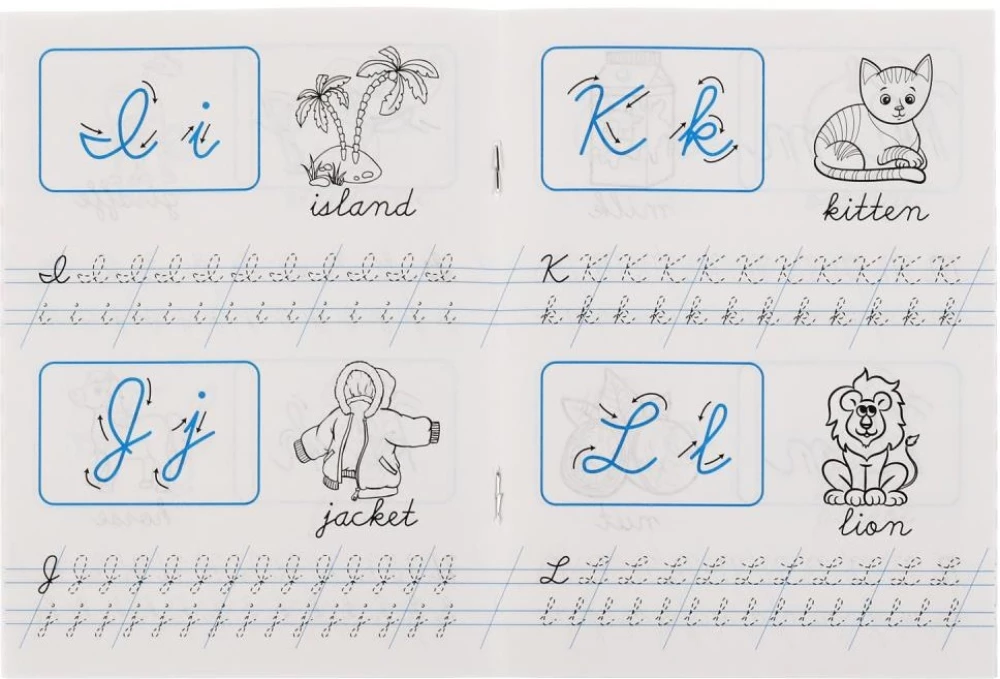 I i
island
I I I I I I I I I I I
i i i i i i i i i i i i i i
J j
jacket
J J J J J J J J J J J J J J
j j j j j j j j j j j j j j
K k
kitten
K K K K K K K K K K K
k k k k k k k k k k k k
L l
lion
L L L L L L L L L L L
l l l l l l l l l l l l l l l